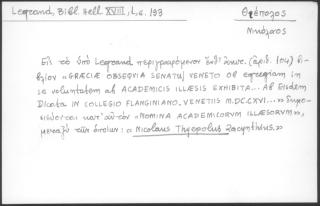 Legrand, Bibl. Hell. XVIII, 1, σ. 133
Θρέπολος
Νικόλαος
Εἰς τὸ ὑπὸ Legrand περιγραφόμενον ἔνθ' ἀνωτ. (ἀριθ. 104) βι-
βλίον «GRÆCIÆ OBSEQVIA SENATVI VENETO OB egregiam in
se voluntatem ab ACADEMICIS ILLÆSIS EXHIBITA... Ab Eisdem
Dicata IN COLLEGIO FLANGINIANO. VENETIIS M.DC.CXVI...» δημο-
σιεύονται κατ' αὐτὸν «NOMINA ACADEMICORVM ILLÆSORVM»,
μεταξὺ τῶν ὁποίων: ὁ «Nicolaus Threpolus Zacynthius.»